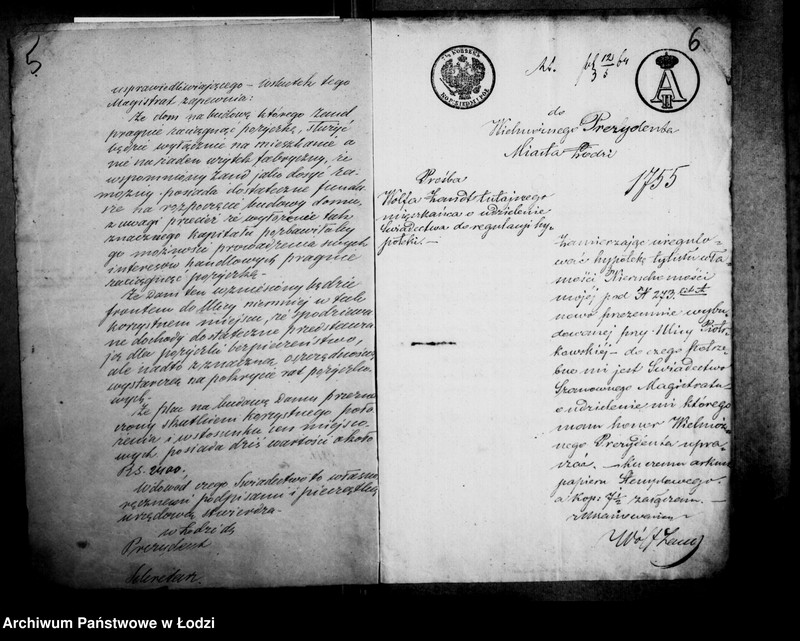 5
uprawiedliwiającego – wskutek tego
Magistrat zapewnia:
Że dom na budowę którego Zand
pragnie zaciągnąć pożyczkę, służyć
będzie wyłącznie na mieszkania a
nie na żaden użytek fabryczny, że
wspomniony Zand jako dosyć za-
możny posiada dostateczne fundu-
sze na rozpoczęcie budowy domu,
z uwagi przecież że wyłożenie tak
znacznego kapitału pozbawiłoby
go możności prowadzenia innych
interesów handlowych pragnie
zaciągnąć pożyczkę.
Że Dom ten wzniesiony będzie
frontem do Ulicy niemniej w tak
korzystnem miejscu, że podziewa
ne dochody dostateczne przedstawia
ją dla pożyczki bezpieczeństwo,
ale nadto z znaczną oszczędnością
wystarczą na pokrycie rat pożyczko-
wych.
Że plac na budowę Domu przezna
czony skutkiem korzystnego poło
żenia i w stosunku cen miejsco-
wych posiada dziś wartości około
Rs. 2400.
W dowód czego Świadectwo to własno
ręcznemi podpisami i pieczątką
urzędową stwierdza.
w Łodzi dą
Prezydent
Sekretarz
6
7½ KOPIEJEK
KOP. SIEDM I PÓŁ
A II
12/5 64
do
Wielmożnego Prezydenta
Miasta Łodzi
1755
Prośba
Wolfa Zandt tutajszego
mieszkańca o udzielenie
Świadectwa do regulacji hy-
poteki –
Zamierzając uregulo-
wać hypotekę tytułu wła-
sności Nieruchomości
mojej pod N 273 lit A
nowo przezemnie wybu-
dowanej przy Ulicy Piotr-
kowskiej – do czego potrze
bne mi jest Świadectwo
Szanownego Magistratu
o udzielenie mi którego
mam honor Wielmoż-
nego Prezydenta upra-
szać. – ku czemu arkusz
papieru Stemplowego
a kop: 7½ załączam. –
z uszanowaniem
Wolf Zand
Archiwum Państwowe w Łodzi